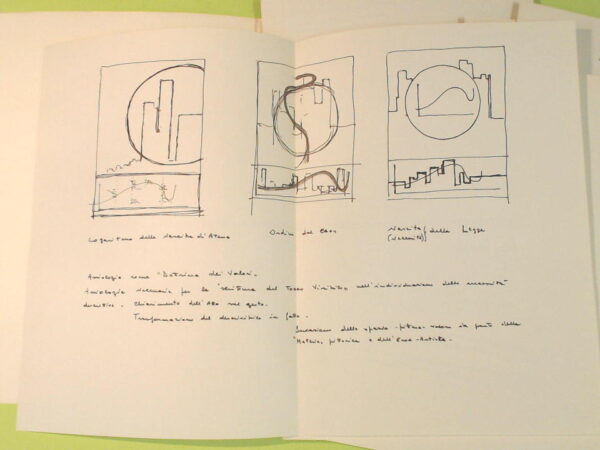 Logaritmo della Nascita di Atena
Ordine dal Caos
Nascita della Legge
(necessità)
Axiologia come "Dottrina dei Valori"
Axiologia necessaria per la "scrittura del Tocco Visibile" nell'individuazione delle necessità
descrittive. Chiarimento dell'Atto nel gesto.
Trasformazione del descrivibile in fatto.
Invenzione dello spazio-pittura-valore da parte della
"Materia" pittorica e dell'Ente-Artista.